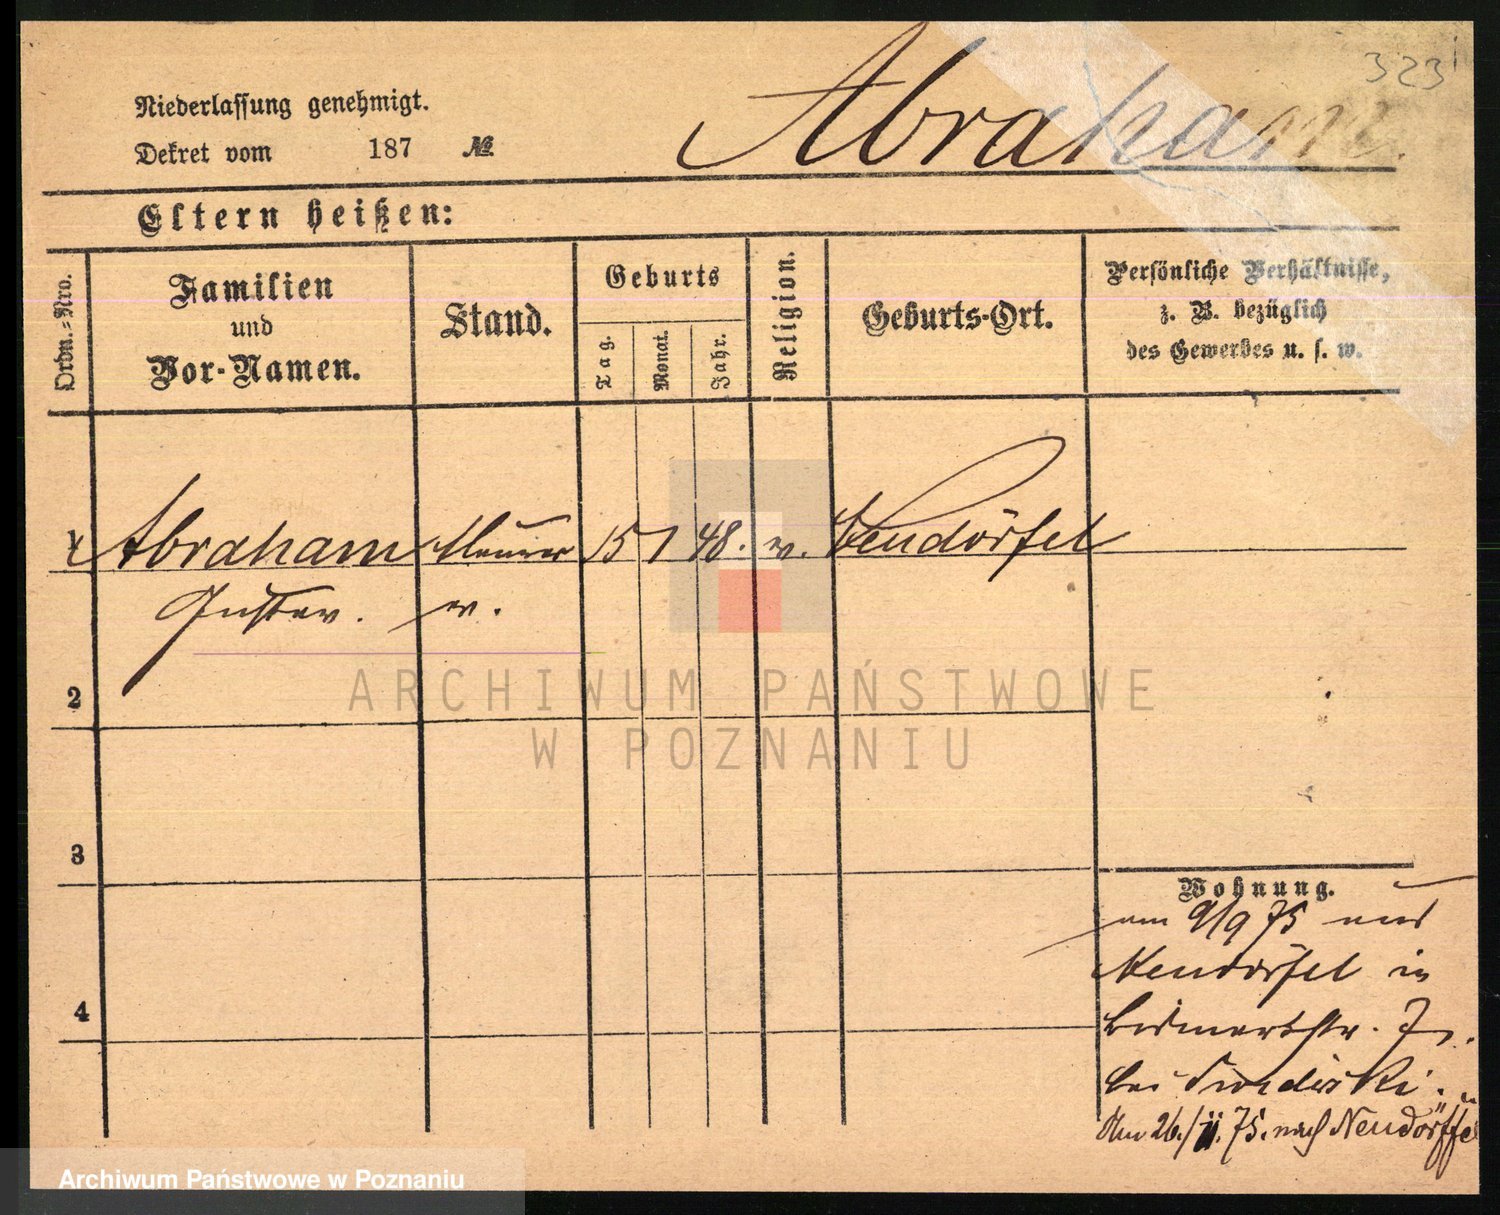 323
Abraham.
Niederlassung genehmigt.
Dekret vom 187 №
Eltern heißen:
Ordn.=Nro.
Familien und Vor-Namen.
Stand.
Geburts
Tag.
Monat.
Jahr.
Religion.
Geburts-Ort.
Persönliche Verhältnisse,
z. B. bezüglich
des Gewerbes u. s. w.
1 Abraham Maurer 15 1 48. ev. Neudörfel
Gustav.
2
3
4
Wohnung.
am 9/9 75 aus
Neudörfel in
Bismarkstr. 7
bei
Am 26./11. 75. nach Neudörffel
ARCHIWUM PAŃSTWOWE
W POZNANIU
Archiwum Państwowe w Poznaniu